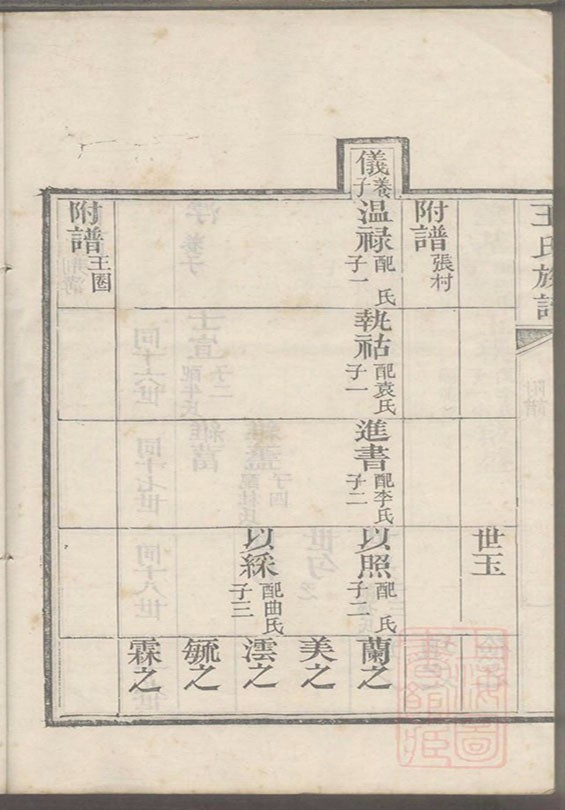 王氏族譜
附譜
世玉
附譜 張村
儀 養子
温禄 配 氏 子一
執祜 配袁氏 子一
進書 配李氏 子二
以照 配 氏 子二
蘭之
美之
以綵 配曲氏 子三
澐之
毓之
霖之
附譜 王圈